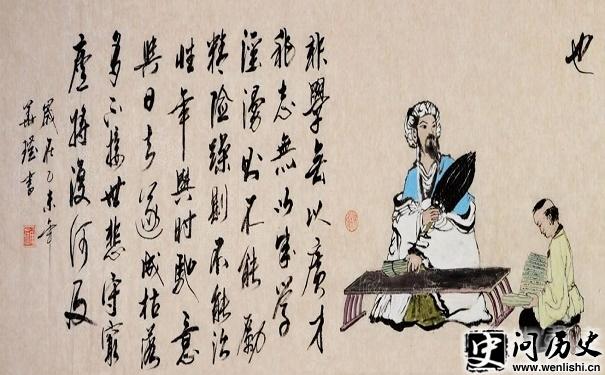 也
非學無以廣才
非志無以成學
淫漫则不能勵
精險躁則不能治
性年與時馳意
與日去遂成枯落
多不接世悲守窮
廬將復何及
歲在乙未年
書
史 问历史
www.wenlishi.cn